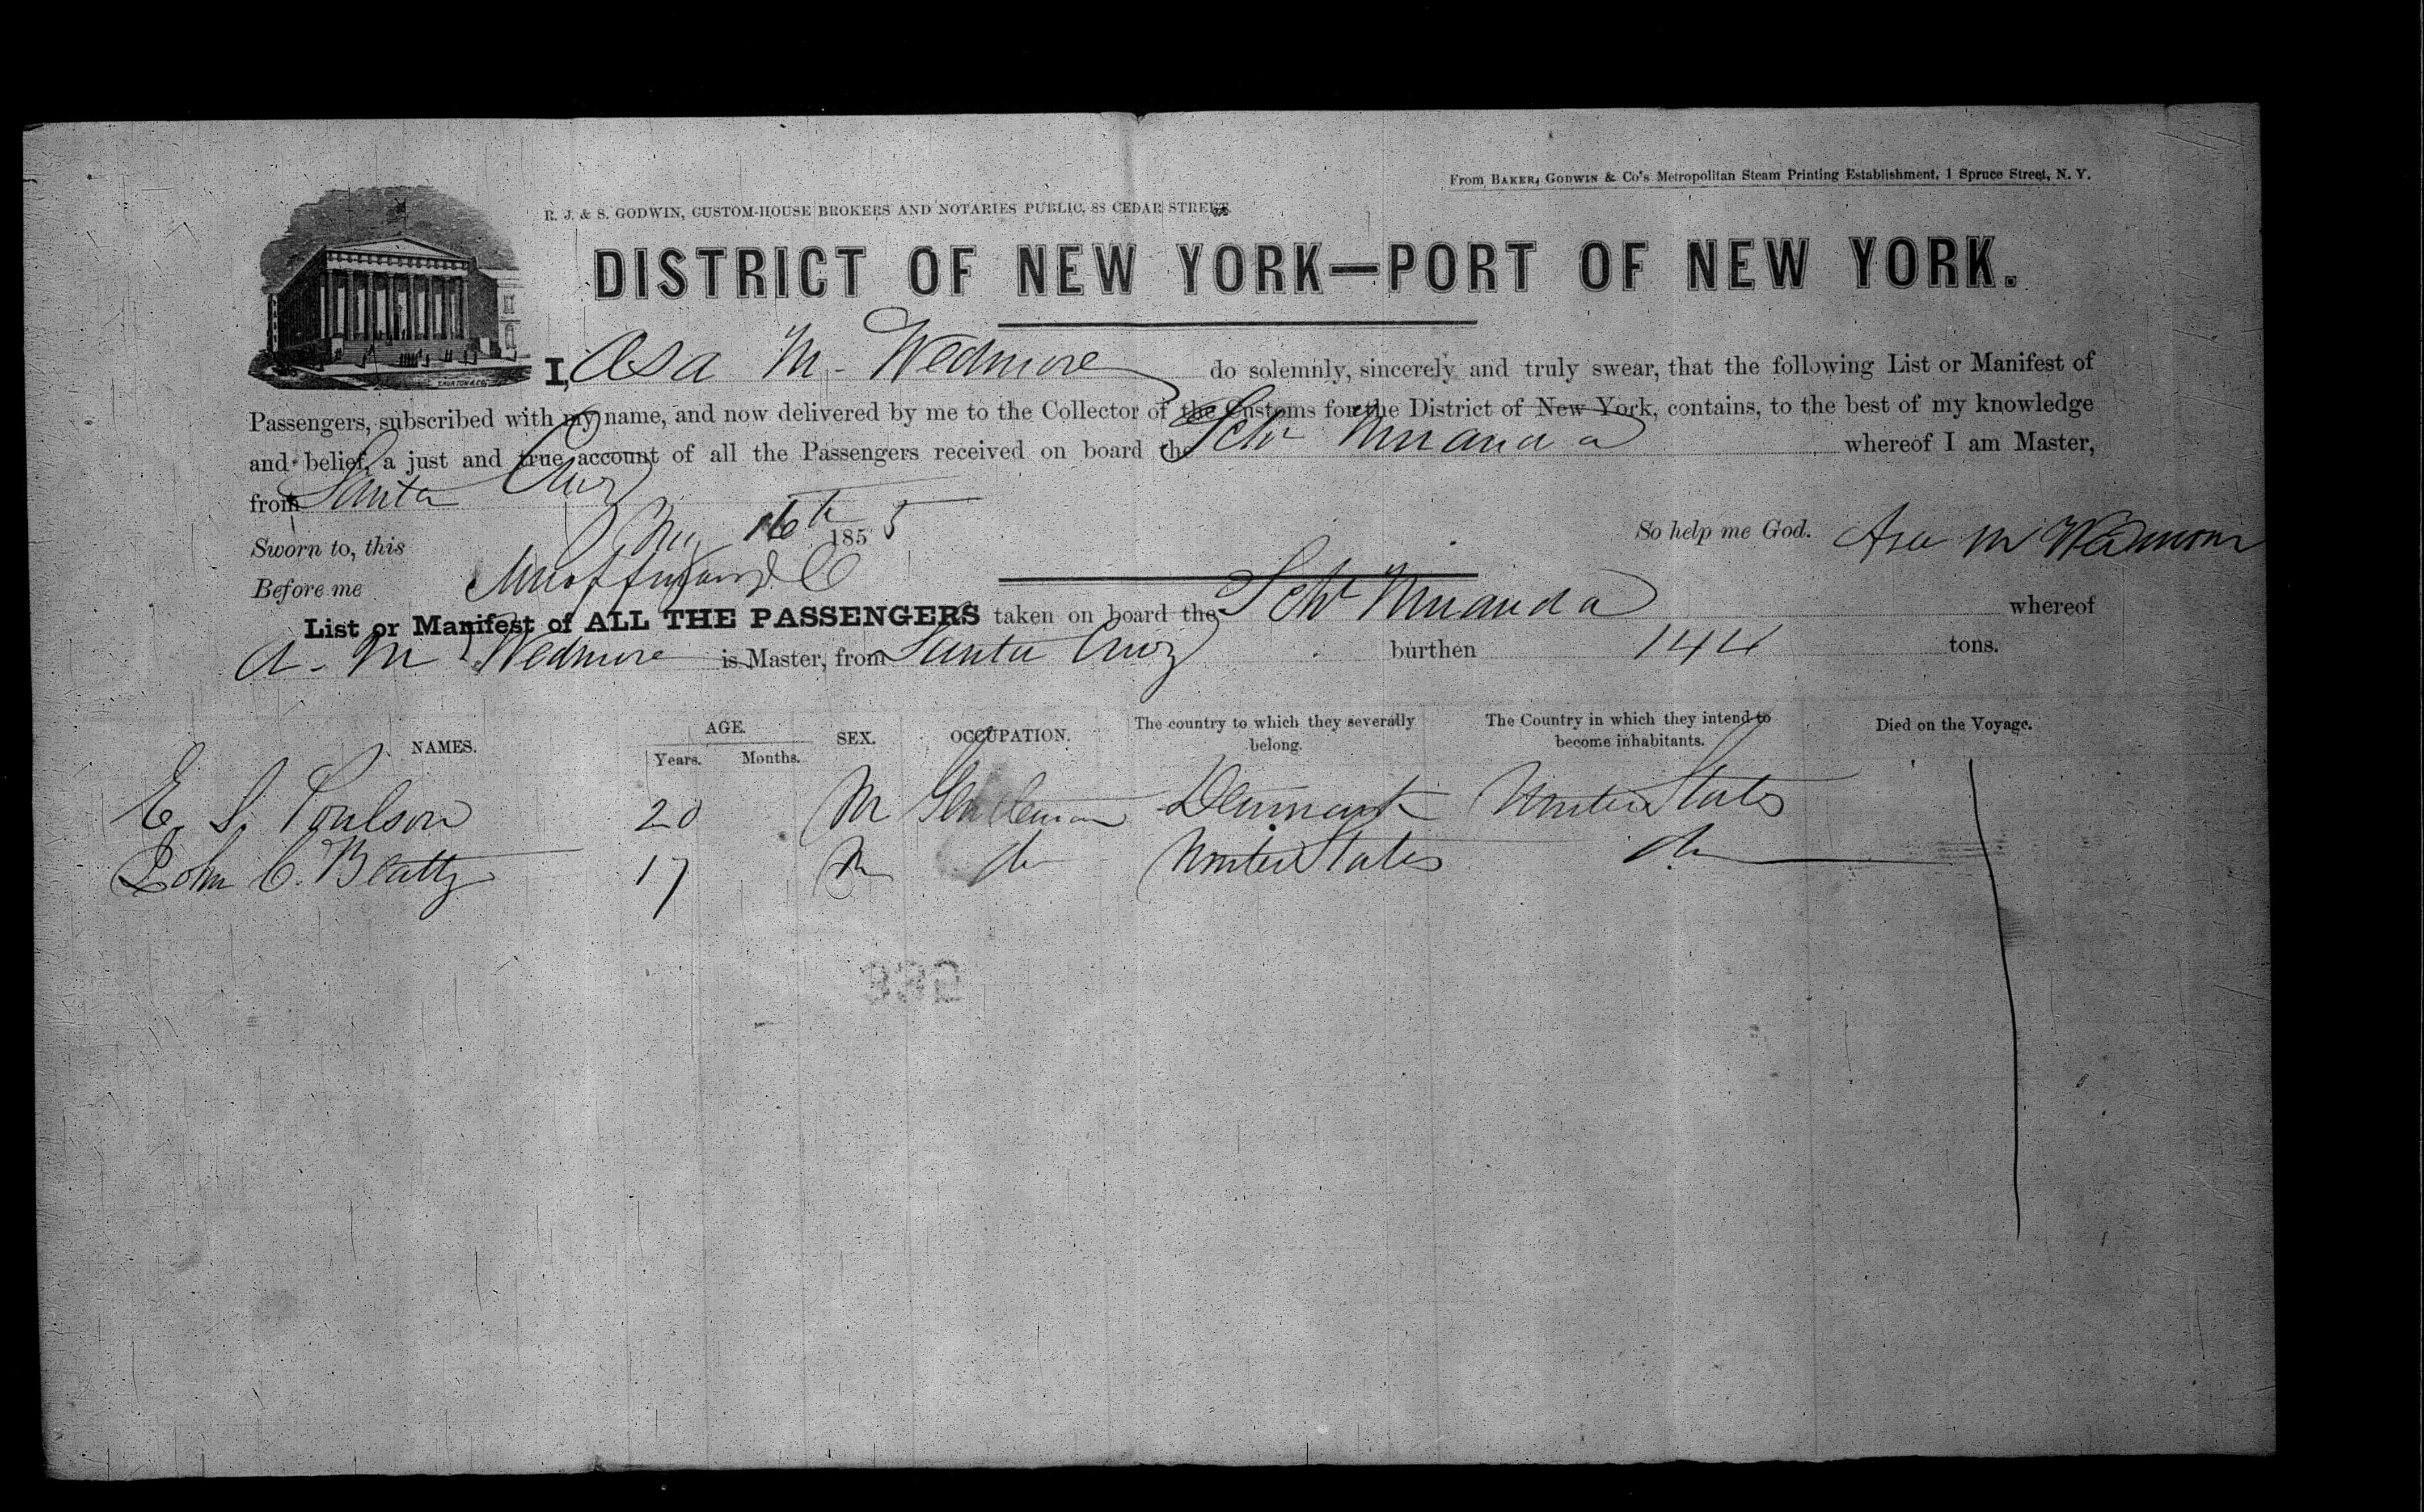 From BAKER, GODWIN & Co's Metropolitan Steam Printing Establishment, 1 Spruce Street, N. Y.
R. J. & S. GODWIN, CUSTOM-HOUSE BROKERS AND NOTARIES PUBLIC, 88 CEDAR STREET.
DISTRICT OF NEW YORK—PORT OF NEW YORK.
I, Asa M. Wedmore do solemnly, sincerely and truly swear, that the following List or Manifest of
Passengers, subscribed with my name, and now delivered by me to the Collector of the Customs for the District of New York, contains, to the best of my knowledge
and belief, a just and true account of all the Passengers received on board the Schr Miranda whereof I am Master,
from Santa Cruz
Sworn to, this 16th 1855 So help me God. Asa M Wedmore
Before me
List or Manifest of ALL THE PASSENGERS taken on board the Schr Miranda whereof
A. M Wedmore is Master, from Santa Cruz burthen 144 tons.
NAMES. AGE. Years. Months. SEX. OCCUPATION. The country to which they severally belong. The Country in which they intend to become inhabitants. Died on the Voyage.
E. S. Poulson 20 M Gentleman Denmark United States
John C. Beatty 17 M do United States do